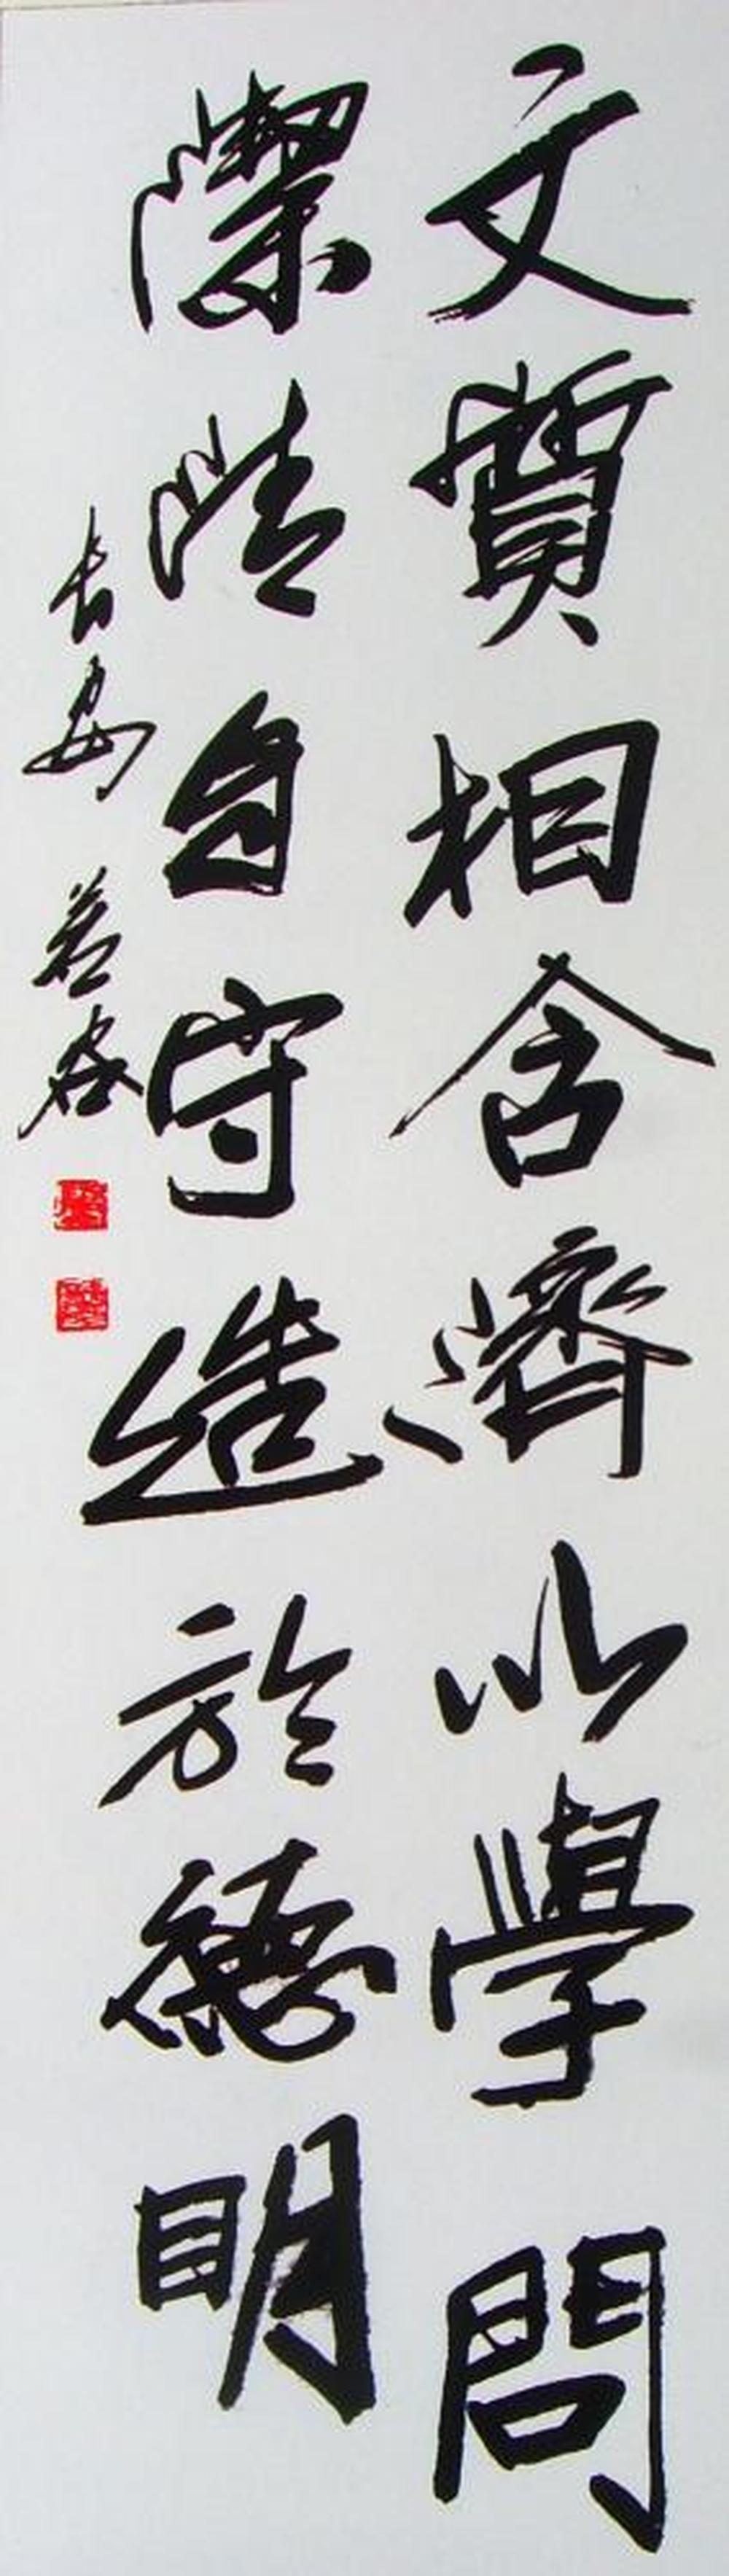 文質相含濟以學問
潔情自守造於德明
長安 若谷